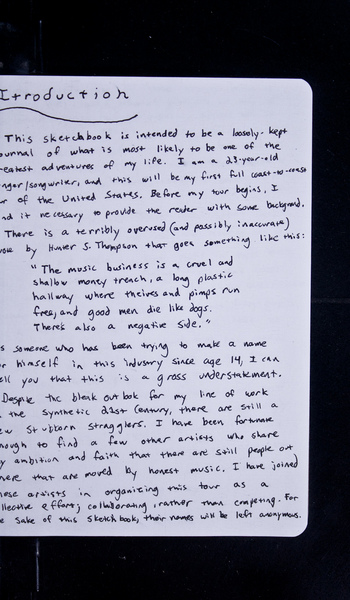 Itroduction
This sketchbook is intended to be a loosely-kept
ournal of what is most likely to be one of the
reatest adventures of my life. I am a 23-year-old
nger/songwriter, and this will be my first full coast-to-coast
r of the United States. Before my tour begins, I
nd it necessary to provide the reader with some background.
There is a terribly overused (and possibly inaccurate)
uote by Hunter S. Thompson that goes something like this:
"The music business is a cruel and
shallow money trench, a long plastic
hallway where theives and pimps run
free, and good men die like dogs.
There's also a negative side."
s someone who has been trying to make a name
or himself in this industry since age 14, I can
ell you that this is a gross understatement.
Despite the bleak outlook for my line of work
the Synthetic 21st Century, there are still a
ew Stubborn Stragglers. I have been fortunate
nough to find a few other artists who share
y ambition and faith that there are still people out
here that are moved by honest music. I have joined
hese artists in organizing this tour as a
llective effort; collaborating, rather than competing. For
e sake of this sketchbook, their names will be left anonymous.